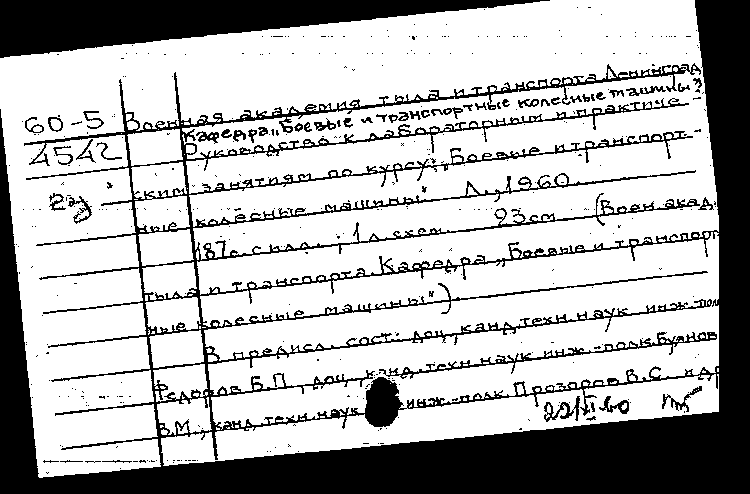 60-5 Военная академия тыла и транспорта Ленинград
Кафедра "Боевые и транспортные колесные машины"
4542 Руководство к лабораторным и практиче-
ским занятиям по курсу: "Боевые и транспорт-
ные колёсные машины" Л., 1960.
187с. с илл.; 1 л. схем. 23см (Воен. акад.
тыла и транспорта. Кафедра "Боевые и транспорт
ные колесные машины").
В предисл. сост: доц., канд. техн. наук инж-полк
Федоров Б.П., доц., канд. техн. наук инж.-полк. Буянов
В.М., канд. техн. наук инж.-полк. Прозоров В.С. и др
22/XI 60